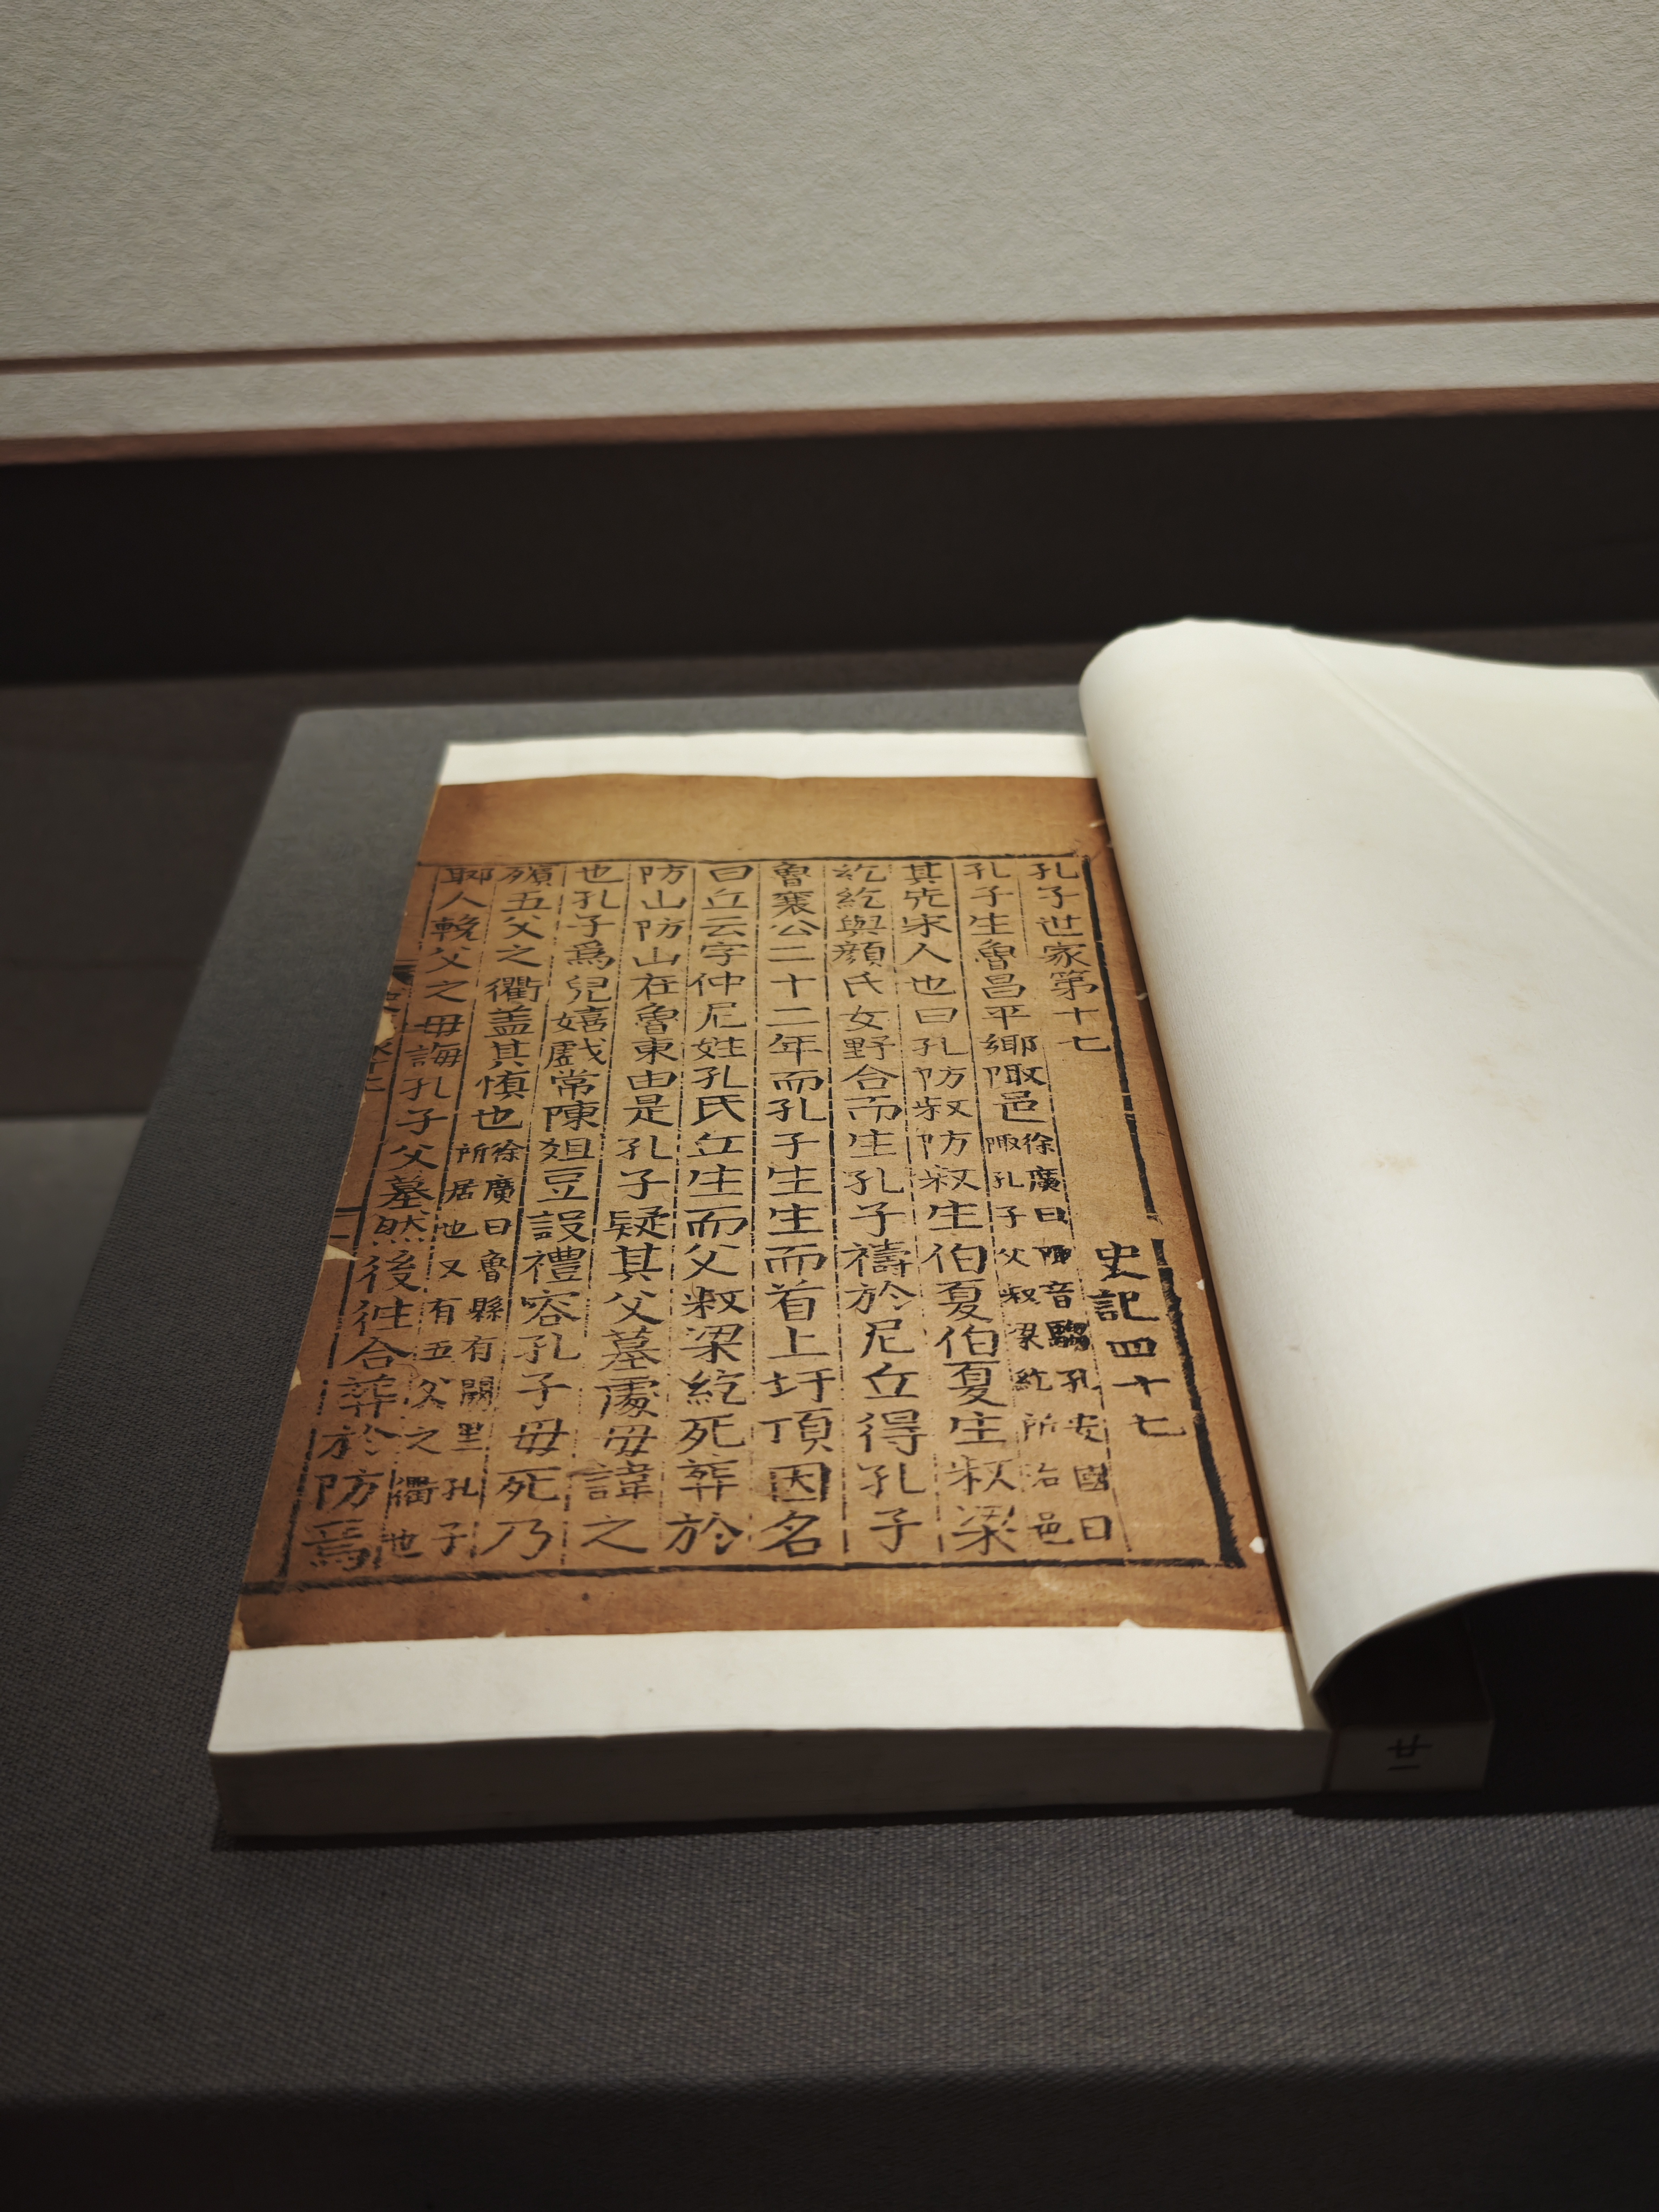 孔子世家第十七 史記四十七
孔子生魯昌平鄉陬邑徐廣曰陬音騶孔安國曰陬孔子父叔梁紇所治邑
其先宋人也曰孔防叔防叔生伯夏伯夏生叔梁
紇紇與顏氏女野合而生孔子禱於尼丘得孔子
魯襄公二十二年而孔子生生而首上圩頂因名
曰丘云字仲尼姓孔氏丘生而父叔梁紇死葬於
防山防山在魯東由是孔子疑其父墓處母諱之
也孔子爲兒嬉戲常陳俎豆設禮容孔子母死乃
殯五父之衢盖其慎也徐廣曰魯縣有闕里孔子所居也又有五父之衢也
郰人輓父之母誨孔子父墓然後往合葬於防焉
廿一